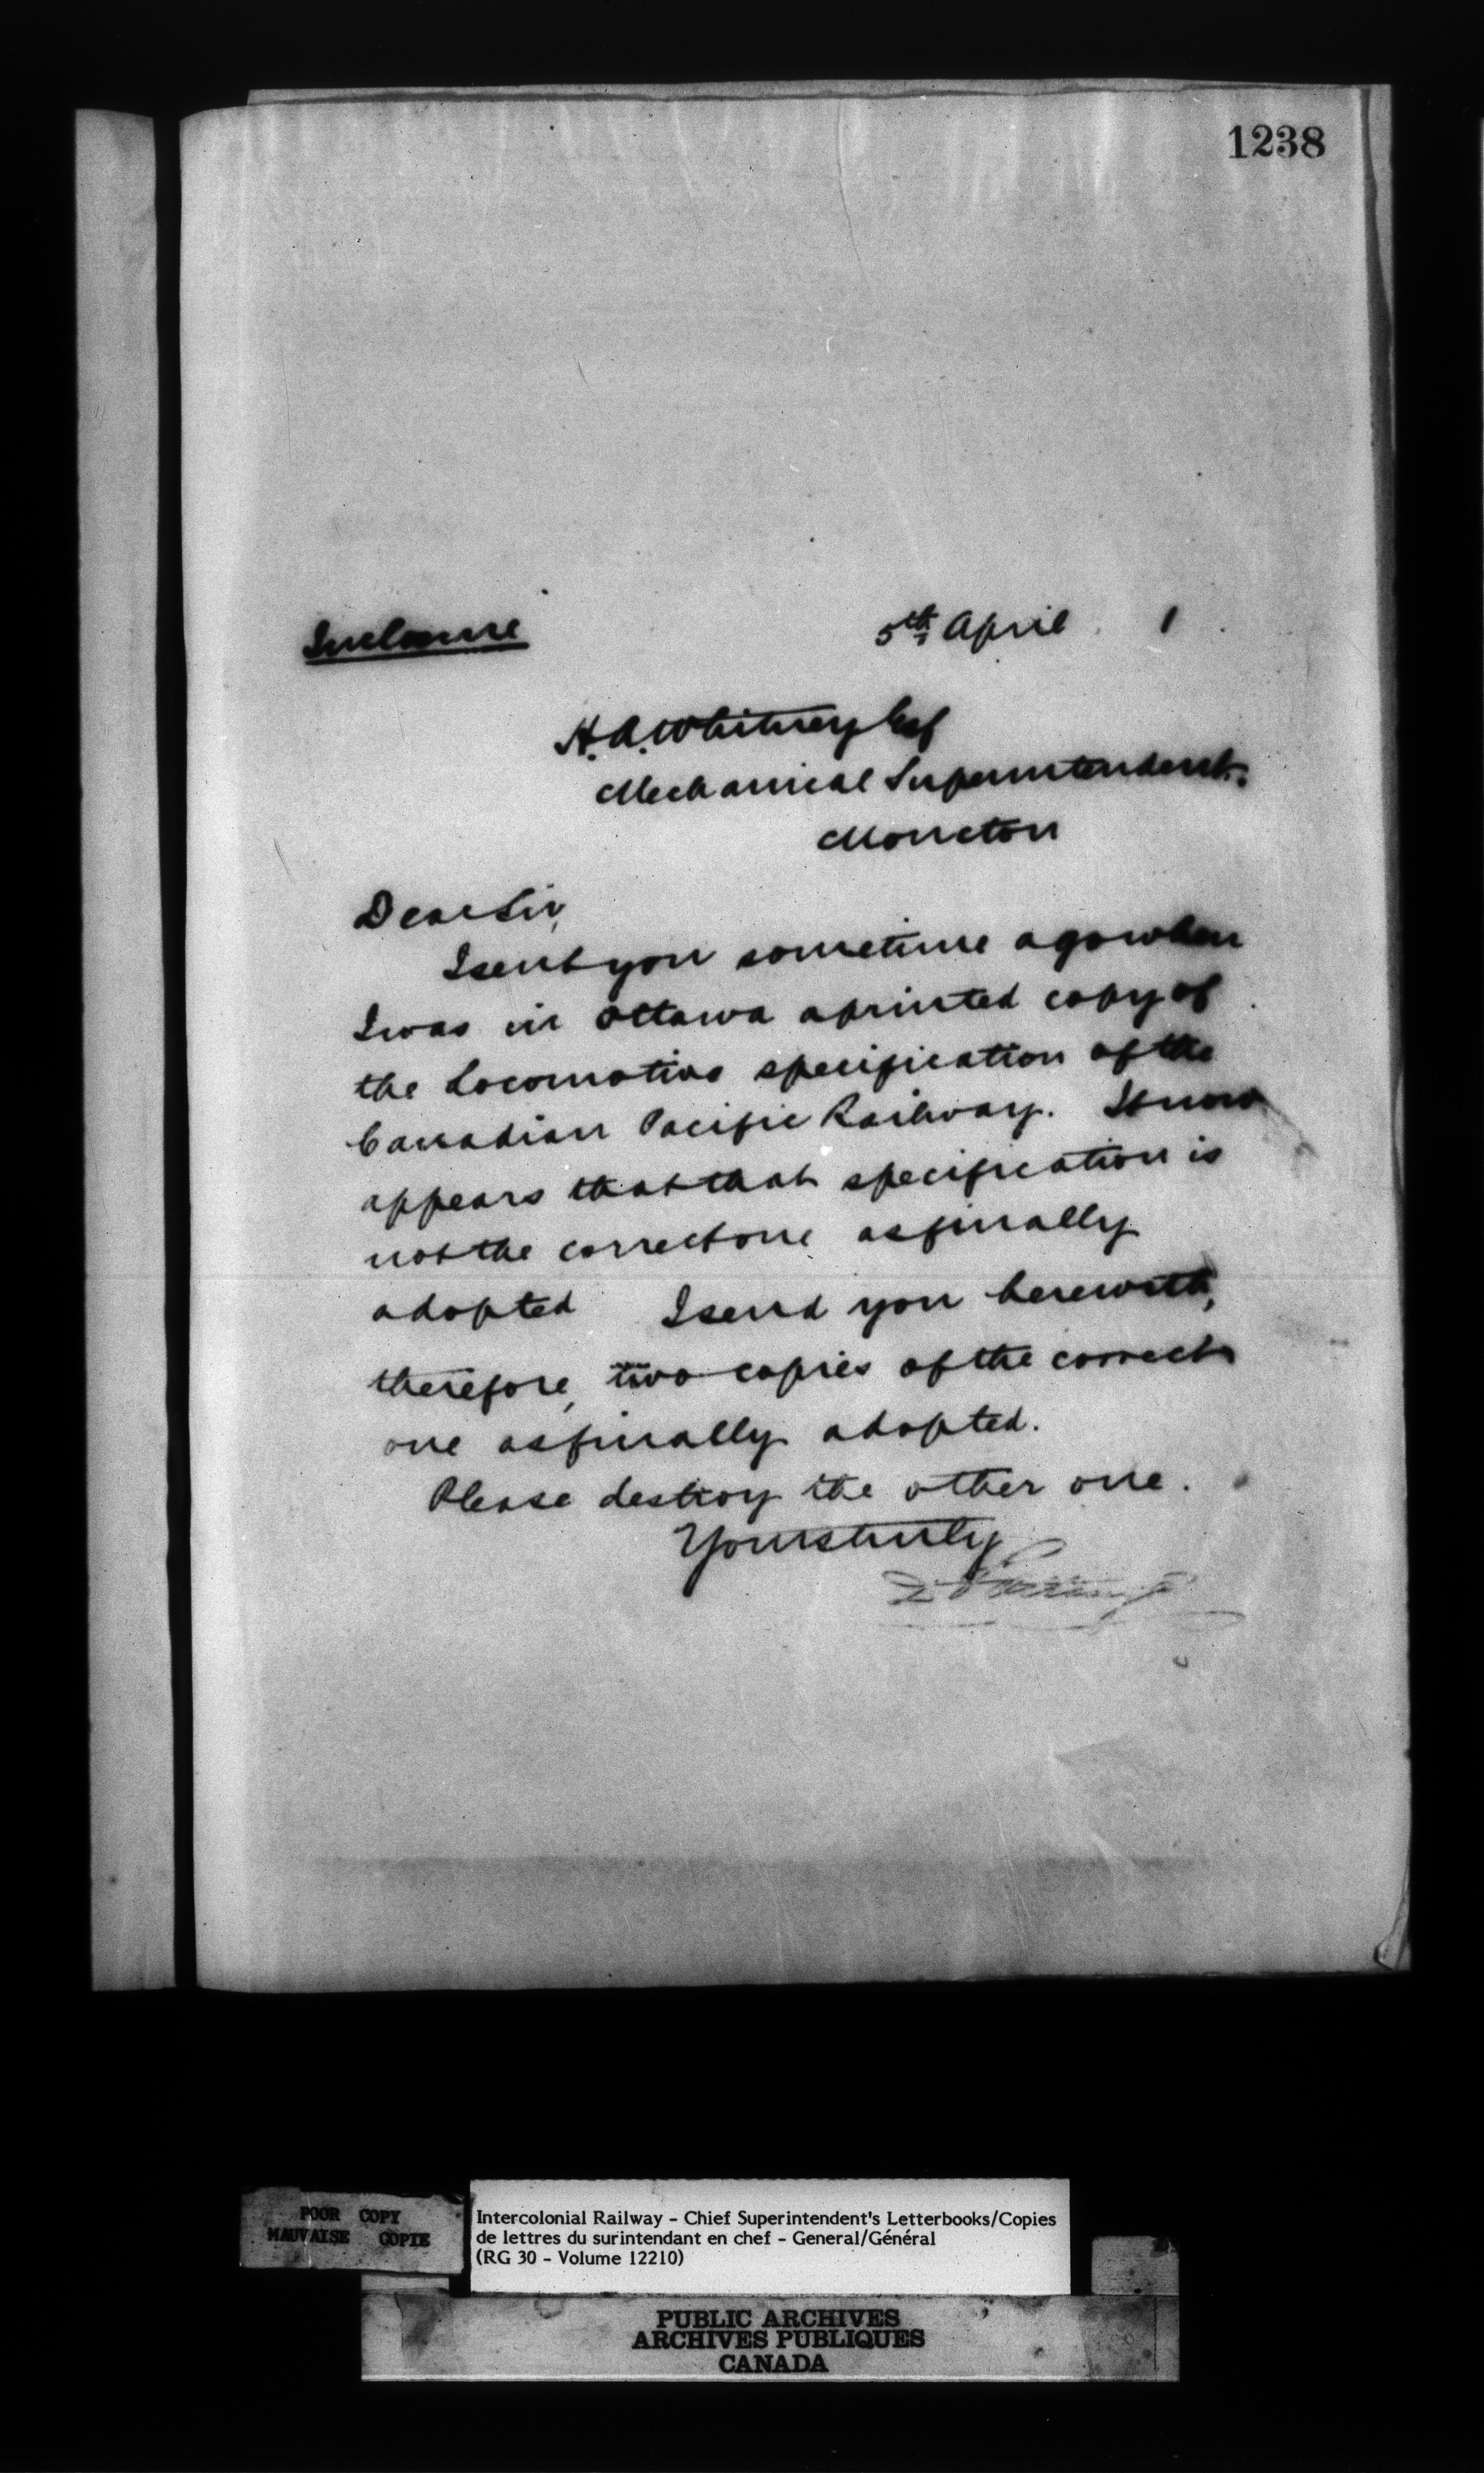 1238
Inclosure
5th April 1
H. A. Whitney Esq
Mechanical Superintendent.
Moncton
Dear Sir,
I sent you sometime ago when
I was in Ottawa a printed copy of
the Locomotive specification of the
Canadian Pacific Railway. It now
appears that that specification is
not the correct one as finally
adopted I send you herewith,
therefore, two copies of the correct
one as finally adopted.
Please destroy the other one.
Yours truly
POOR COPY
MAUVAISE COPIE
Intercolonial Railway - Chief Superintendent's Letterbooks/Copies
de lettres du surintendant en chef - General/Général
(RG 30 - Volume 12210)
PUBLIC ARCHIVES
ARCHIVES PUBLIQUES
CANADA